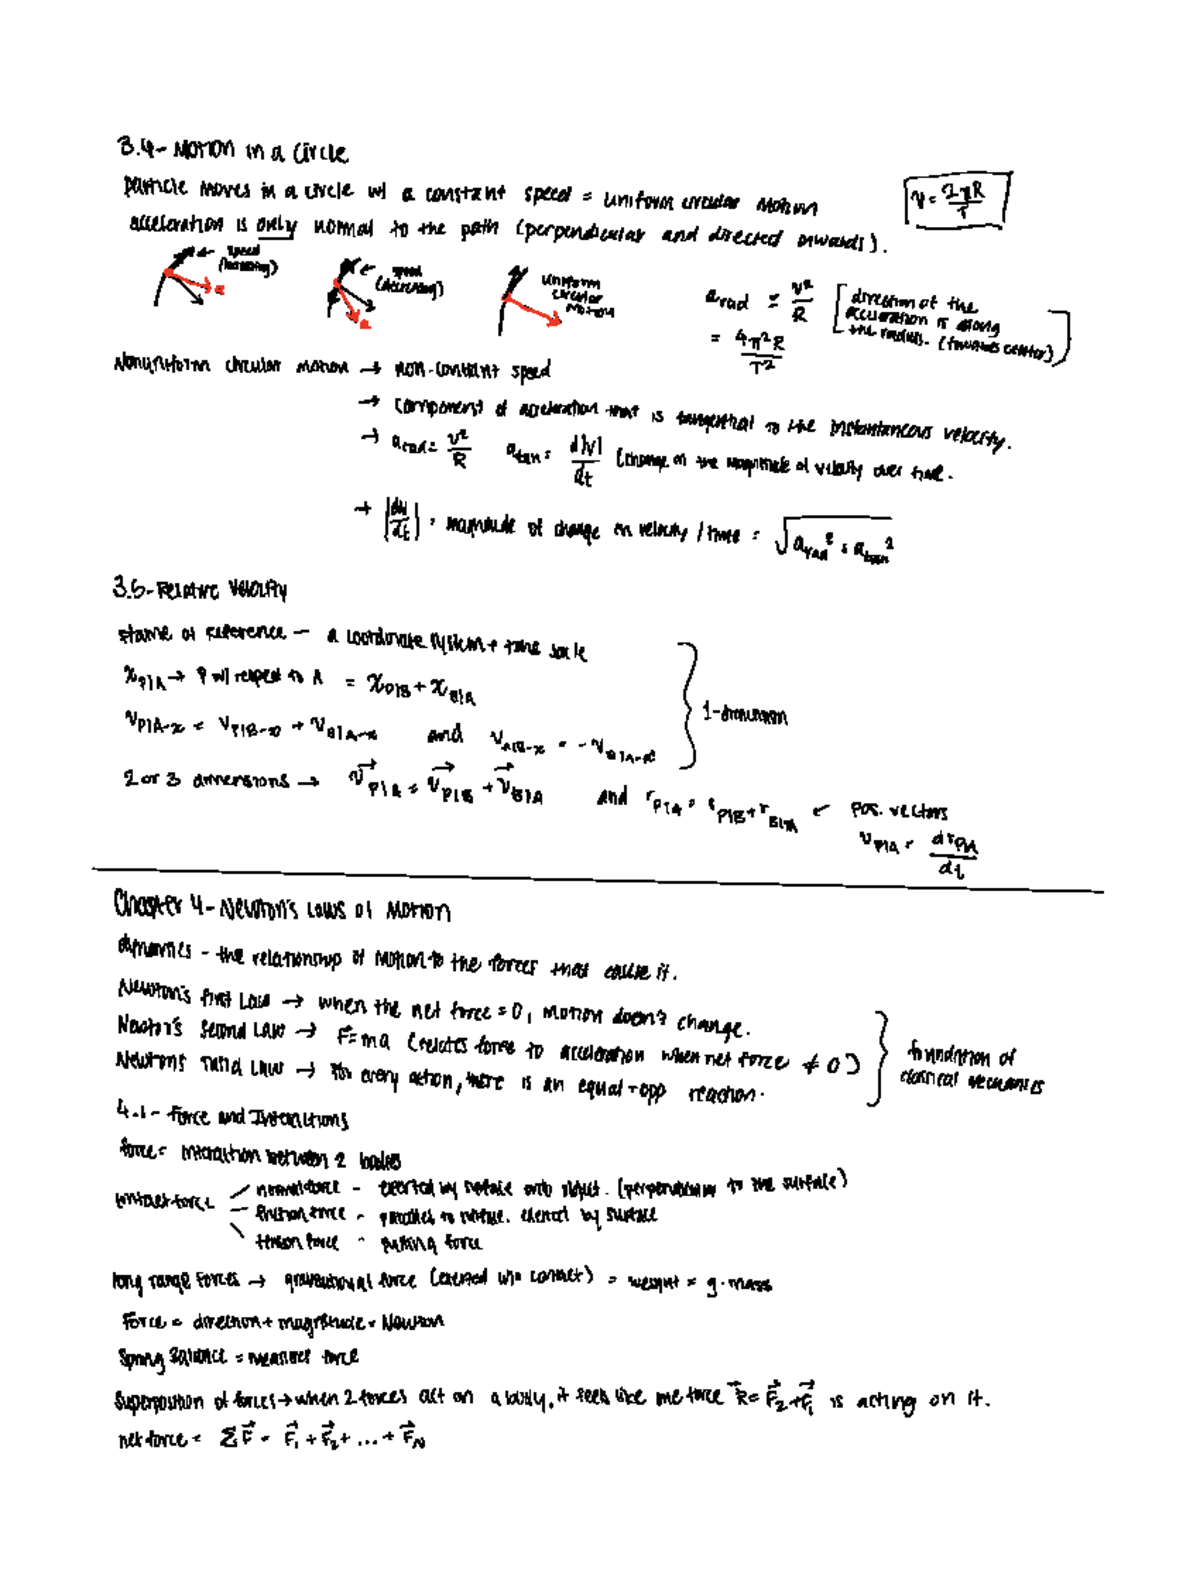 3.4 - Motion in a Circle
particle moves in a circle w/ a constant speed = uniform circular motion
v = 2πR / T
acceleration is only normal to the path (perpendicular and directed inwards).
speed (increasing)
a
speed (decreasing)
a
uniform circular motion
a_rad = v² / R [direction of the acceleration is along the radius. (towards center)]
= 4π²R / T²
Nonuniform circular motion → non-constant speed
→ component of acceleration that is tangential to the instantaneous velocity.
→ a_rad = v² / R a_tan = d|v| / dt (change in the magnitude of velocity over time.
→ |dv/dt| = magnitude of change in velocity / time = √ a_rad² + a_tan²
3.5 - Relative Velocity
frame of reference - a coordinate system + time scale
x_P/A → P w/ respect to A = x_P/B + x_B/A
v_P/A-x = v_P/B-x + v_B/A-x and v_A/B-x = -v_B/A-x
1-dimension
2 or 3 dimensions → v⃗_P/A = v⃗_P/B + v⃗_B/A and r_P/A = r_P/B + r_B/A ← pos. vectors
v_P/A = dr_P/A / dt
Chapter 4 - Newton's Laws of Motion
dynamics - the relationship of motion to the forces that cause it.
Newton's first Law → when the net force = 0, motion doesn't change.
Newton's second Law → F⃗ = ma (relates force to acceleration when net force ≠ 0)
Newtons Third Law → for every action, there is an equal + opp reaction.
foundation of classical mechanics
4.1 - Force and Interactions
force = interaction between 2 bodies
contact force
normal force - exerted by surface onto object. (perpendicular to the surface)
friction force - parallel to surface. exerted by surface
tension force - pulling force
long range forces → gravitational force (exerted w/o contact) = weight = g · mass
Force = direction + magnitude = Newton
Spring Balance = measures force
Superposition of forces → when 2 forces act on a body, it feels like one force R⃗ = F⃗₂ + F⃗₁ is acting on it.
net force = ΣF⃗ = F⃗₁ + F⃗₂ + ... + F⃗_N